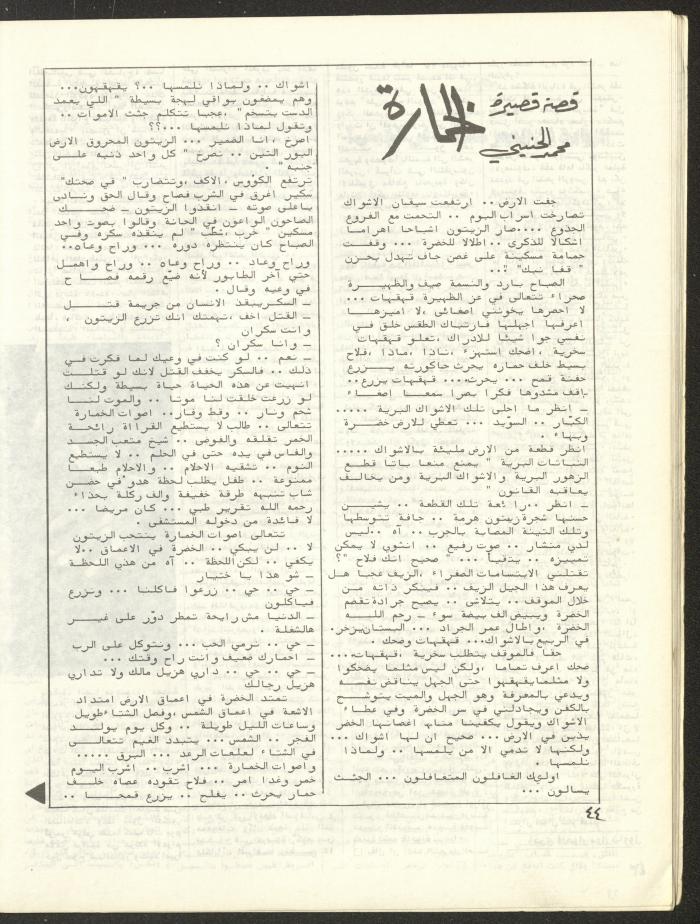 قصة قصيرة
الخمارة
محمد الحنيني
جفت الارض .. ارتفعت سيقان الاشواك
تصارخت اسراب البوم .. التحمت مع الفروع
الجذوع ....صار الزيتون اشباحا اهراما
اشكالا للذكرى ..اطلالا للخضرة ... وقفت
حمامة مسكينة على غصن جاف تهدل بحزن
" قفا نبك" !..
الصباح بارد والنسمة صيف والظهيرة
صحراء تتعالى في عز الظهيرة قهقهات ...
لا احصرها يخونني اصغائي ،لا اميزهــا
اعرفها اجهلها فارتباك الطقس خلق في
نفسي جوا شيئا للادراك ،تعلو قهقهات
سخرية ، اضحك استهزء ،ناذا ،ماذا، فلاح
بسيط خلف حماره يحرث حاكورته يــــزرع
حفنة قمح ... يحرث.... قهقهات يزرع..
اقف مشدوها فكرا بصرا سمعا اصغــاء
ـ انظر ما احلى تلك الاشواك البرية .....
الكبّار .. السوّيد ... تعطي للارض خضــرة
وبهاء .
انظر قطعة من الارض مليئة بالاشواك .....
النباتات البرية " يمنع منعا باتا قطــع
الزهور البرية والاشواك البرية ومن يخالــف
يعاقبه القانون "
ـ انظر ..رائعة تلك القطعة .. يشيــــن
حسنها شجرة زيتون هرمة .. جافة تتوسطها
وتلك التينة المصابة بالجرب .. آه ..ليس
لدي منشار .. صوت رفيع .. انثوي لا يمكن
تمييزه .. يتقيأ ... " صحيح انك فلاح "؟
تقتلني الابتسامات الصفراء ،الزيف عجبا هـل
يعرف هذا الجيل الزيف .. فينكر ذاته مـن
خلال الموقف .. يتلاشى .. يصبح جرادة تقضم
الخضرة ويبيض الف بيضة سوء ـ رحم اللــه
الخضرة ،واطال عمر الجراد ... البستان يزخر.
في الربيع بالاشواك... قهقهات وضحك .
حقا فالموقف يتطلب سخرية ،قهقهات....
ضحك اعرف تماما ،ولكن ليس مثلما يضحكوا
ولا مثلما يقهقهوا حتى الجهل يناقض نفسـه
ويدعي بالمعرفة وهو الجهل والميت يتوشــح
بالكفن ويجادلني في سر الخضرة وفي عطــاء
الاشواك ويقول يكفينا منها اغصانها الخضر
يدبن في الارض... صحيح ان لها اشواك ...
ولكنها لا تدمي الا من يلمسها .. ولمــاذا
نلمسها .
اولئك الغافلون المتغافلون ... الجثث
يسالون ...
اشواك .. ولماذا نلمسها ..؟ يقهقهون...
وهم يمضغون بواقي لهجة بسيطة " اللي يعمد
الدست يتسخم" ،عجبا تتكلم جثث الاموات ..
وتقول لماذا نلمسها ...؟؟
اصرخ ،انا الضمير ... الزيتون المحروق الارض
البور التين .. نصرخ " كل واحد ذنبه علــى
جنبه "
ترتفع الكؤوس ،الاكف ،وتتضارب " في صحتك"
سكير اغرق في الشرب فصاح وقال الحق ونـادى
باعلى صوته ـ انقذوا الزيتون ـ ضحـــــك
الصاحون الواعون في الحانة وقالوا بصوت واحد
مسكين " خرب ،شطب " لم ينقذه سكره وفــي
الصباح كان ينتظره دوره ... وراح وعاه..
وراح وعاد .. وراح وعاه .. وراح واهمــل
حتى آخر الطابور لأنه ضيّع رقمه فصـــاح
في وعيه وقال .
ـ السكر يبقذ الانسان من جريمة قتـــل
ـ القتل اخف ،تهمتك انك تزرع الزيتون ،
وانت سكران
ـ وانا سكران ؟
ـ نعم .. لو كنت في وعيك لما فكرت فـي
ذلك .. فالسكر يخفف القتل لانك لو قتلــت
انهيت عن هذه الحياة حياة بسيطة ولكنــك
لو زرعت خلقت لنا موتا .. والموت لنــا
شحم ونار .. وقط وفار.. اصوات الخمارة
تتعالى .. طالب لا يستطيع القراءة رائحـة
الخمر تقلقه والفوضى .. شيخ متعب الجســد
والفاس في يده حتى في الحلم .. لا يستطيع
النوم .. تشقيه الاحلام .. والاحلام طبعــا
ممنوعة .. طفل يطلب لحظة هدوء في حضــن
شاب تنبهه طرقة خفيفة والف ركلة بحذاء
رحمه الله تقرير طبي ... كان مريضا ...
لا فائدة من دخوله المستشفى .
تتعالى اصوات الخمارة ينتحب الزيتون
لا .. لن يبكي .. الخضرة في الاعماق ..لا
يكفي .. لكن اللحظة .. آه من هذي اللحظـة
ـ شو هذا يا ختيار
ـ حي .. حي .. زرعوا فاكلنا ... ونـزرع
فياكلون
ـ الدنيا مش رايحة تمطر دوّر على غيـــر
هالشغلة .
ـ حي .. نرمي الحب ... ونتوكل على الرب
ـ احمارك ضعيف وانت راح وقتك ...
ـ حي .. حي .. داري هزيل مالك ولا تداري
هزيل رجالك
تمتد الخضرة في اعماق الارض امتداد
الاشعة في اعماق الشمس ،وفصل الشتاء طويل
وساعات الليل طويلة .. وكل يوم يولــــد
الفجر .. الشمس ... يتبدد الغيم تتعالــى
في الشتاء لعلعات الرعد ... البرق ......
واصوات الخمارة ... اشرب .. اشرب اليـوم
خمر وغدا امر .. فلاح تقوده عصاه خلــف
حمار يحرث .. يفلح .. يزرع قمحـــا ..
٤٤